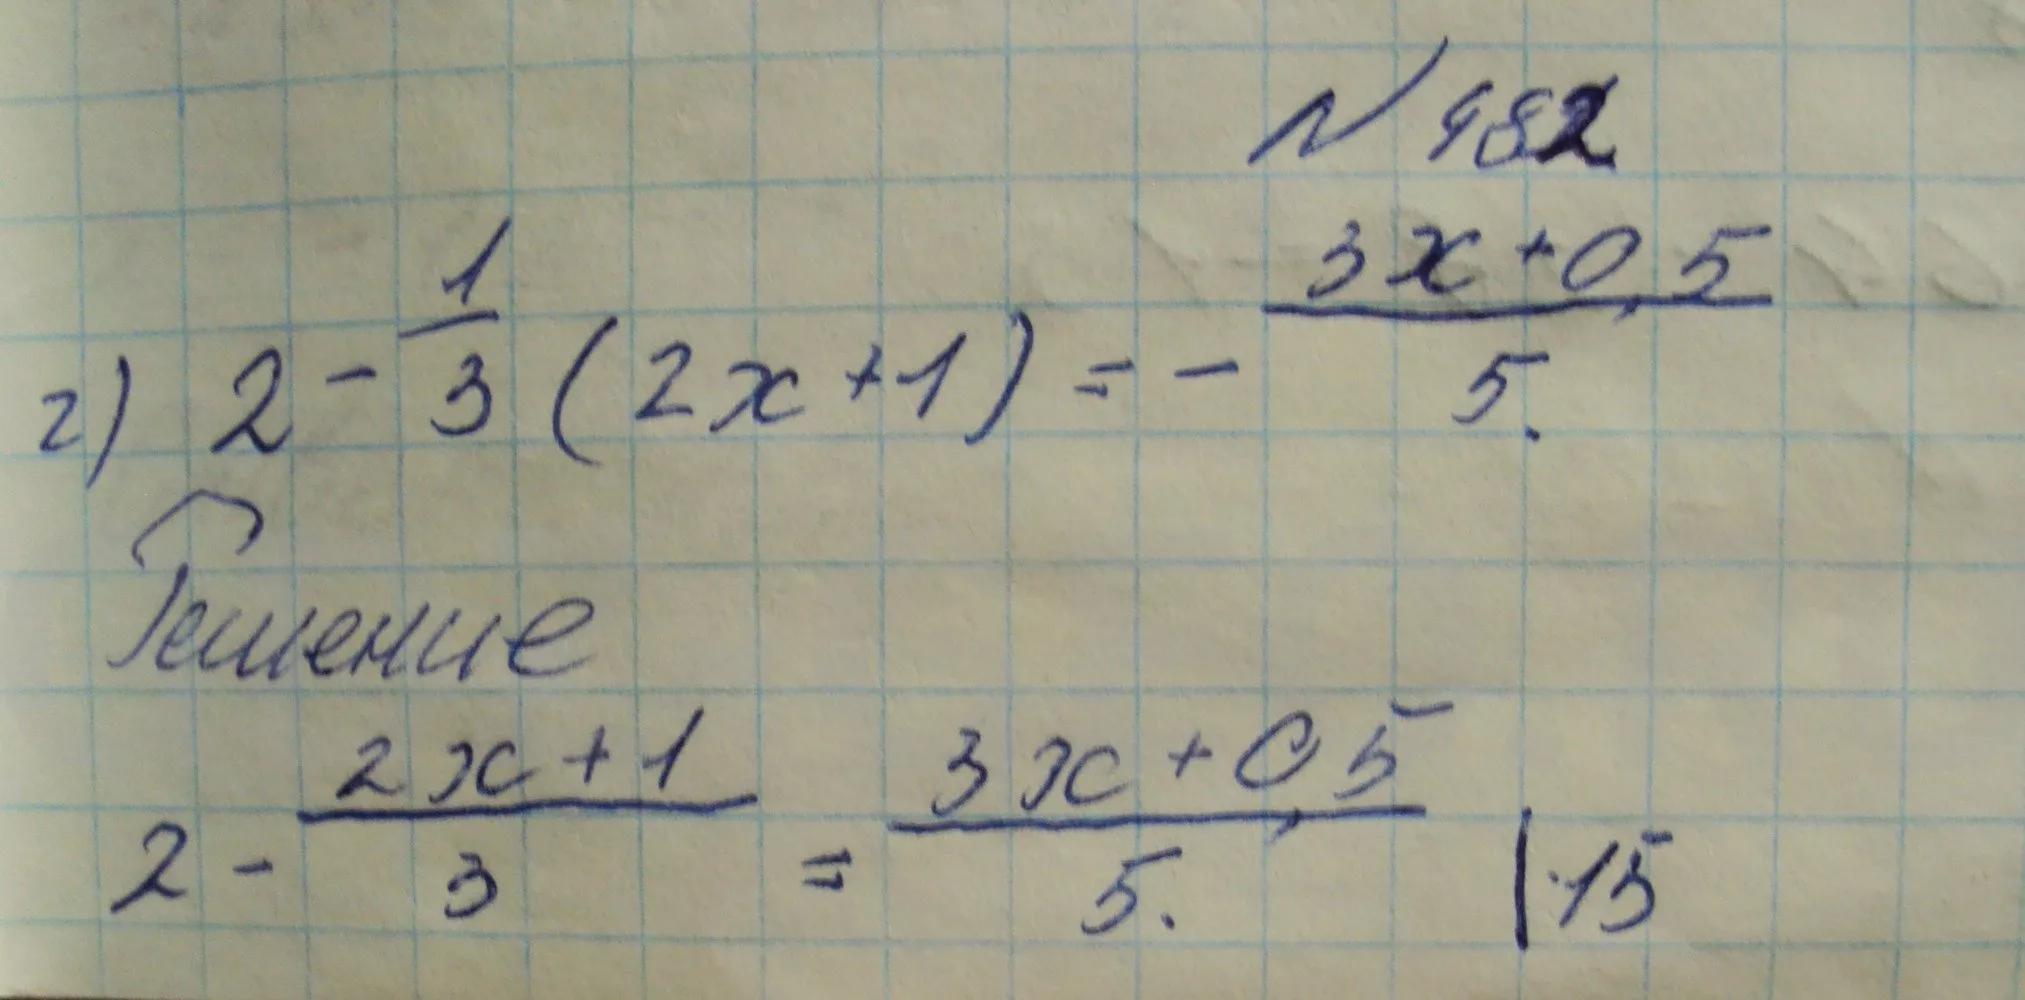 N 982
г) 2 - 1/3 (2x+1) = - 3x+0,5/5.
Решение
2 - 2x+1/3 = 3x+0,5/5. |·15